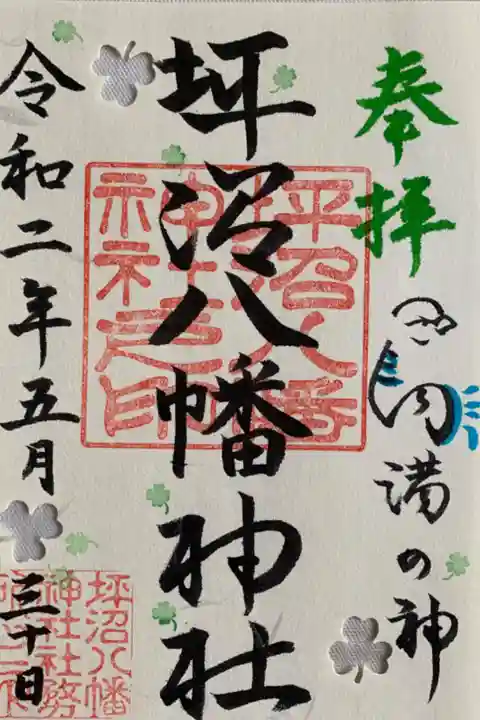 奉拝
円満の神
坪沼八幡神社
令和二年五月三十日
坪沼八幡
神社之印
坪沼八幡
神社社務